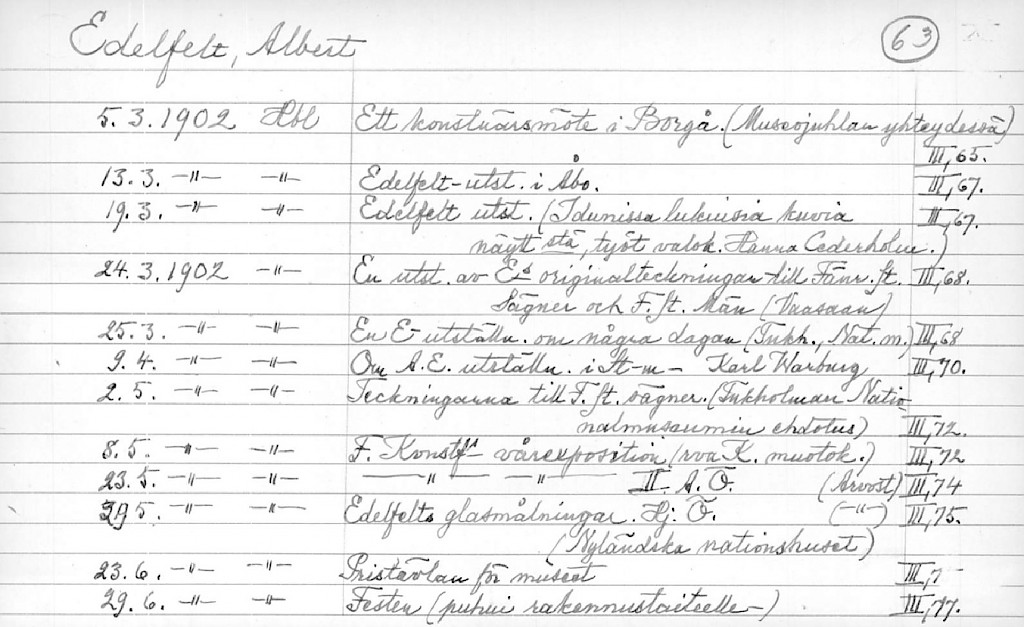 Edelfelt, Albert 63
5.3.1902 Hbl Ett konstnärsmöte i Borgå. (Museojuhlan yhteydessä)
III, 65.
13.3. —"— —"— Edelfelt-utst. i Åbo. III, 67.
19.3. —"— —"— Edelfelt utst. (Idunissa lukuisia kuvia III, 67.
näytt stä, työt valok. Hanna Cederholm.)
24.3.1902 —"— En utst. av E's originalteckningar till Fänr. St. III, 68.
Sägner och F. St. Män (Vaasaan)
25.3. —"— —"— En E-utställn. om några dagar (Tukh., Nat. m.) III, 68
9.4. —"— —"— Om A.E. utställn. i St-m – Karl Warburg III, 70.
2.5. —"— —"— Teckningarna till F. St. sägner. (Tukholman Natio-
nalmuseumin ehdotus) III, 72.
8.5. —"— —"— F. Konstf's vårexposition (rva K. muotok.) III, 72
23.5. —"— —"— —"— —"— II. A. Ö. (Arvost) III, 74
29.5. —"— —"— Edelfelts glasmålningar. Hj: Ö. (—"—) III, 75.
(Nyländska nationshuset)
23.6. —"— —"— Pristävlan för museet III, 7
29.6. —"— —"— Festen (puhui rakennustaiteelle—) III, 77.